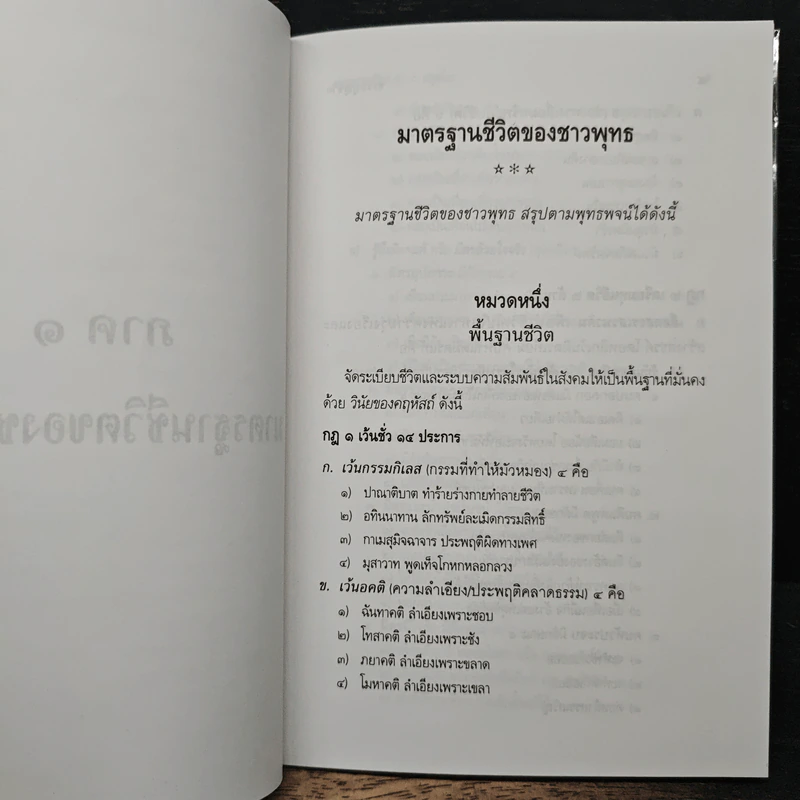 มาตรฐานชีวิตของชาวพุทธ
☆ ✻ ☆
มาตรฐานชีวิตของชาวพุทธ สรุปตามพุทธพจน์ได้ดังนี้
หมวดหนึ่ง
พื้นฐานชีวิต
จัดระเบียบชีวิตและระบบความสัมพันธ์ในสังคมให้เป็นพื้นฐานที่มั่นคง
ด้วย วินัยของคฤหัสถ์ ดังนี้
กฎ ๑ เว้นชั่ว ๑๔ ประการ
ก. เว้นกรรมกิเลส (กรรมที่ทำให้มัวหมอง) ๔ คือ
๑) ปาณาติบาต ทำร้ายร่างกายทำลายชีวิต
๒) อทินนาทาน ลักทรัพย์ละเมิดกรรมสิทธิ์
๓) กาเมสุมิจฉาจาร ประพฤติผิดทางเพศ
๔) มุสาวาท พูดเท็จโกหกหลอกลวง
ข. เว้นอคติ (ความลำเอียง/ประพฤติคลาดธรรม) ๔ คือ
๑) ฉันทาคติ ลำเอียงเพราะชอบ
๒) โทสาคติ ลำเอียงเพราะชัง
๓) ภยาคติ ลำเอียงเพราะขลาด
๔) โมหาคติ ลำเอียงเพราะเขลา